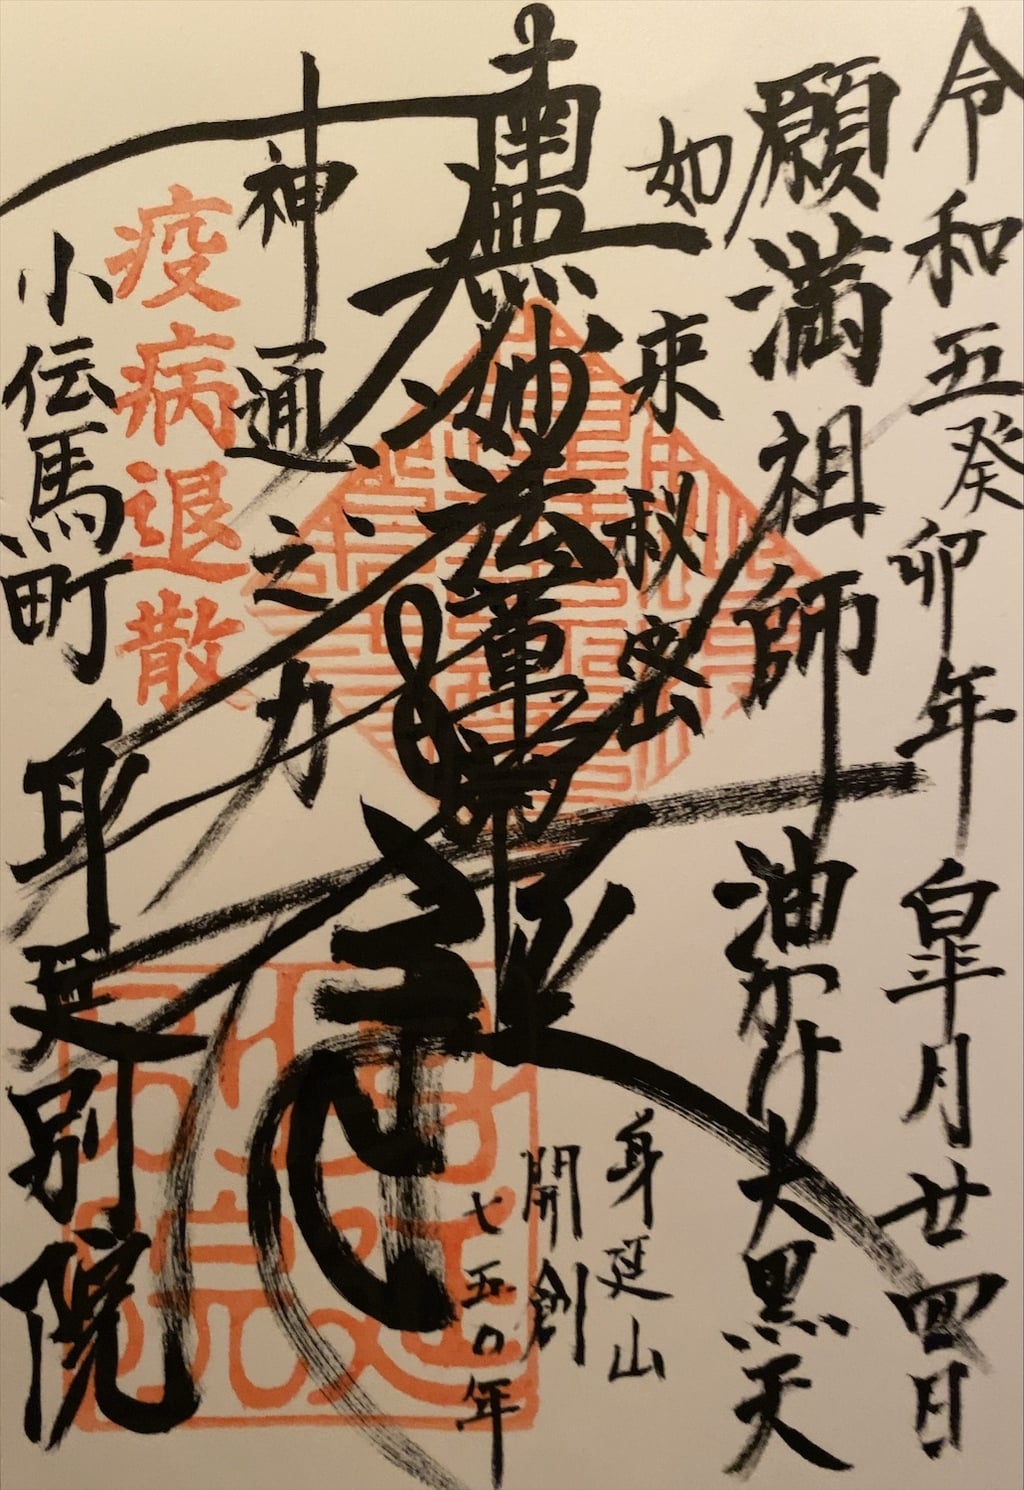 令和五癸卯年皐月廿四日
願満祖師 油かけ大黒天
如来秘密
身延山
開創
七五〇年
南無妙法蓮華経
神通之力
疫病退散
小伝馬町 身延別院